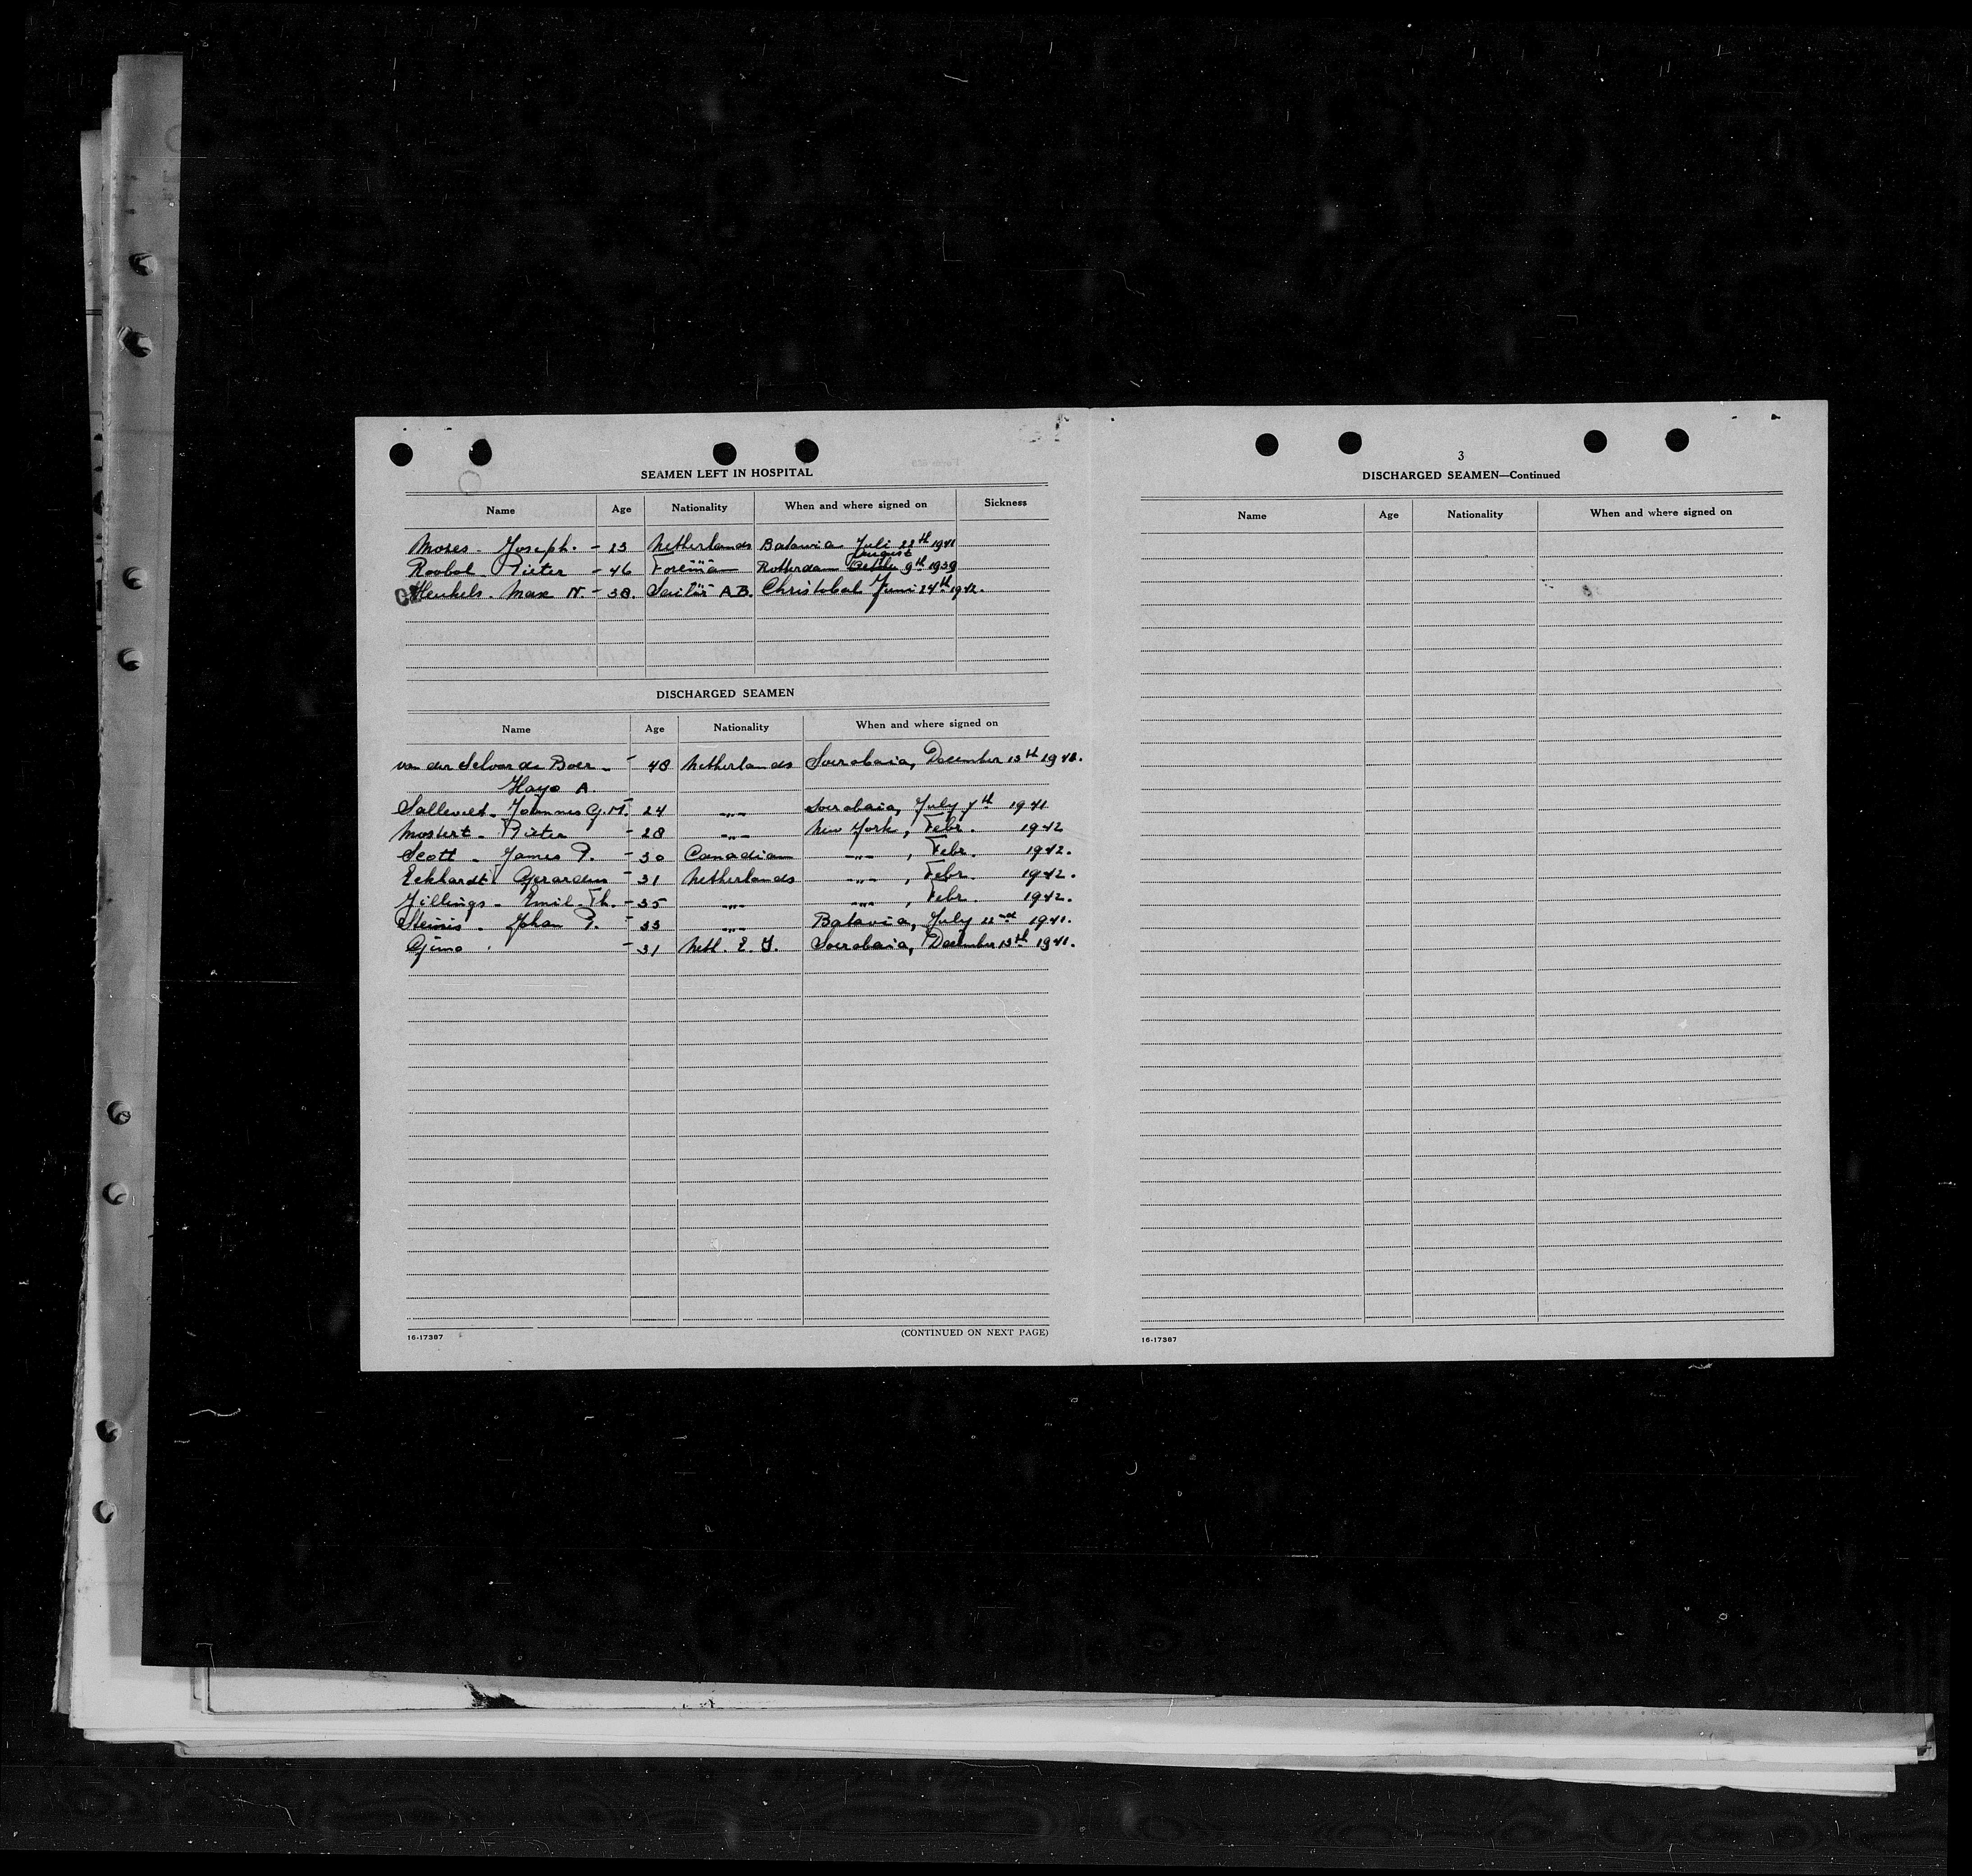 SEAMEN LEFT IN HOSPITAL
Name Age Nationality When and where signed on Sickness
Moses - Joseph. - 23 Netherlands Batavia Juli 22th 1941
August
Roobol - Pieter - 46 Foreman Rotterdam 9th 1939
Henkels - Max N. - 38. Sailor A.B. Christobal Juni 24th 1942.
DISCHARGED SEAMEN
Name Age Nationality When and where signed on
van der de Boer - - 48 Netherlands Soerabaia, December 13th 1941.
Hayo A.
Sallevelt - Johannes G.M. - 24 -"- Soerabaia, July 7th 1941
Mostert - Pieter - 28 -"- New York, Febr. 1942
Scott - James P. - 30 Canadian -"-, Febr. 1942.
Eckhardt Gerardus - 31 Netherlands -"-, Febr. 1942.
Jillings - Emil Th. - 35 -"- -"-, Febr. 1942.
Johan P. - 33 -"- Batavia, July 22nd 1941.
- 31 Neth. E. I. Soerabaia, December 13th 1941.
16-17387 (CONTINUED ON NEXT PAGE)
3
DISCHARGED SEAMEN—Continued
Name Age Nationality When and where signed on
16-17387